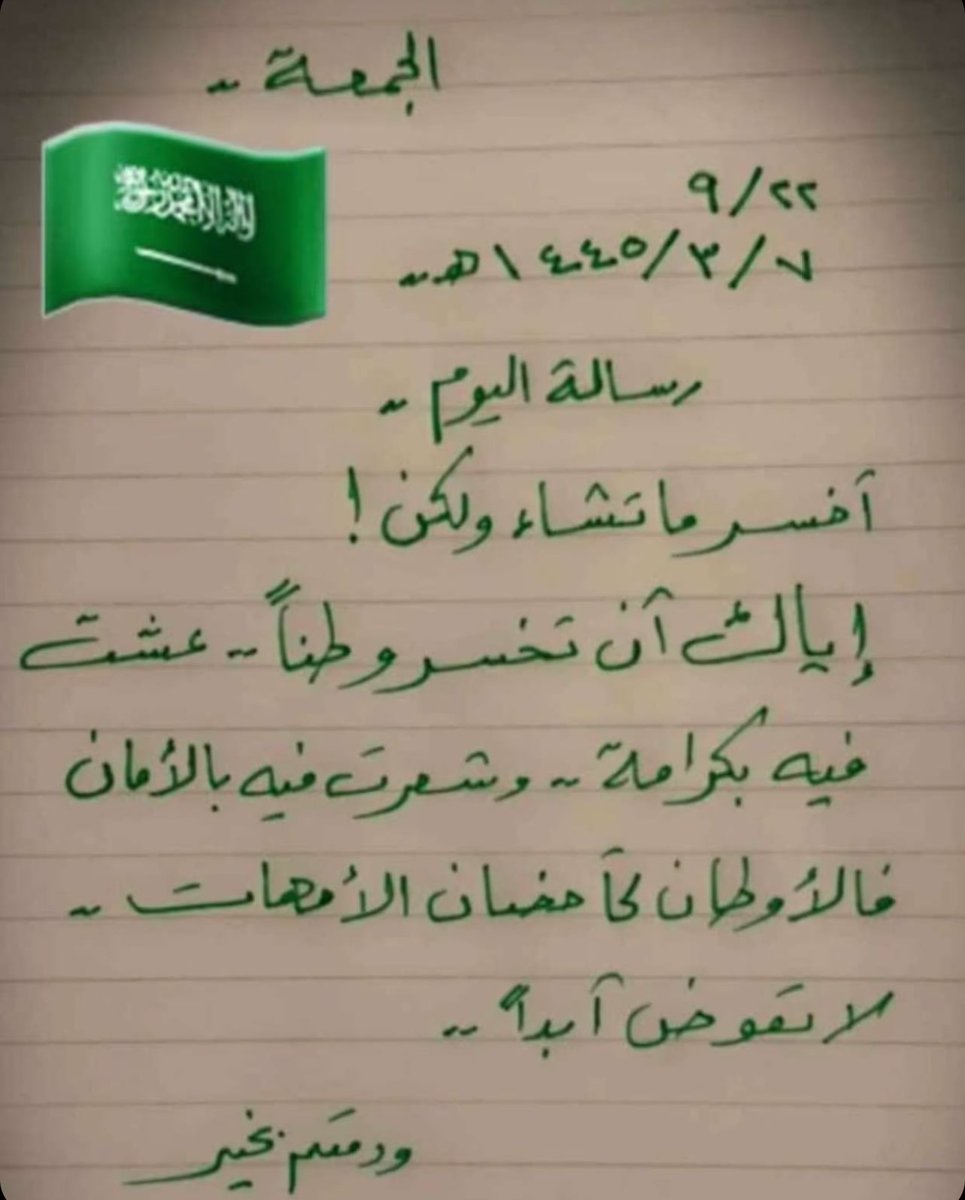 الجمعة ..
٩/٢٢
١٤٤٥/٣/٧هـ..
رسالة اليوم ..
أخسر ماتشاء ولكن !
إياك أن تخسر وطناً .. عشت
فيه بكرامة .. وشعرت فيه بالأمان
فالأوطان كأحضان الأمهات ..
لاتعوض أبداً ..
ودمتم بخير